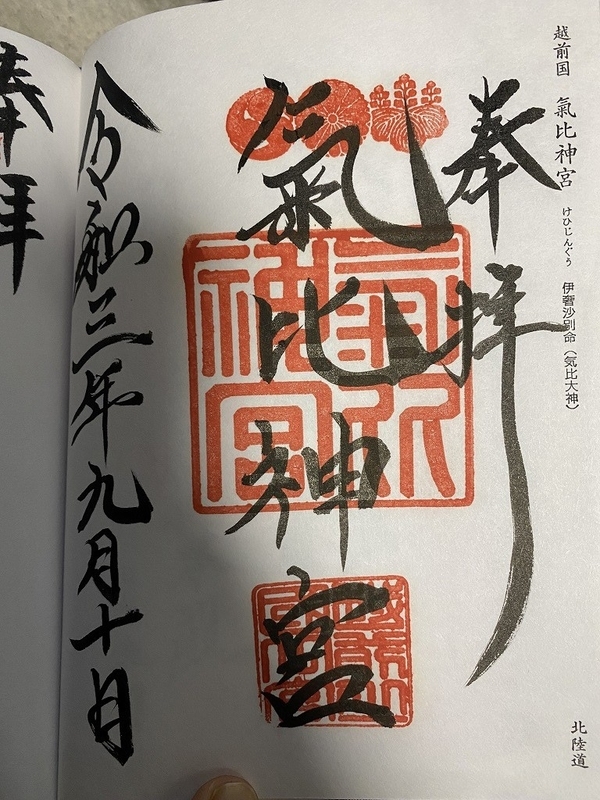 越前国 氣比神宮 けひじんぐう 伊奢沙別命（気比大神）
北陸道
奉拝
氣比神宮
氣比
神宮
令和三年九月十日
奉拝